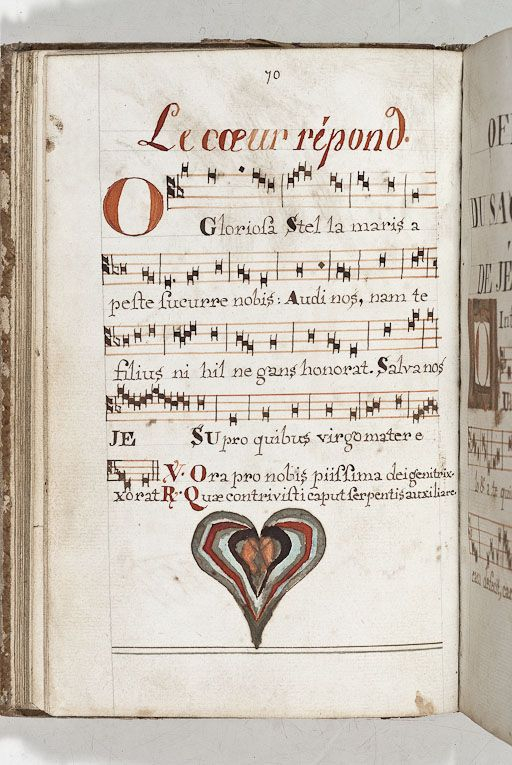 70
Le cœur répond.
O Gloriosa Stel la maris a
peste sucurre nobis: Audi nos, nam te
filius ni hil ne gans honorat. Salva nos
JE SU pro quibus virgo mater e
xorat
℣. Ora pro nobis piissima dei genitrix.
℟. Quæ contrivisti caput serpentis auxiliare.
OF
DU SA
DE JÉ